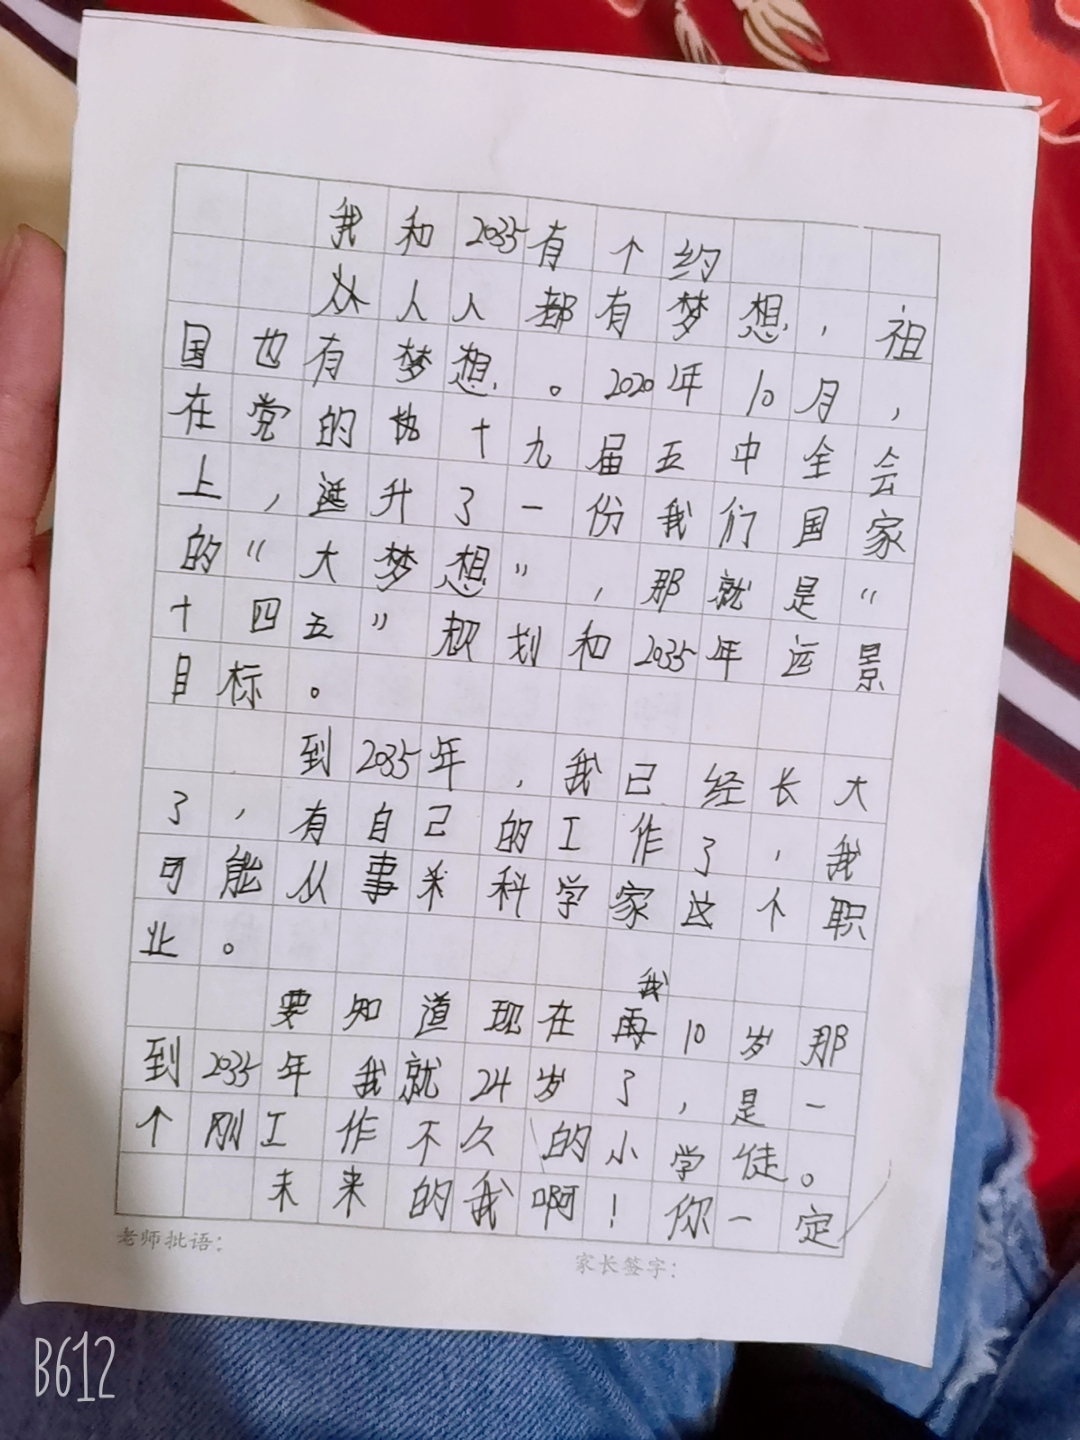 我和2035有个约
从人人都有梦想，祖
国也有梦想。2020年10月，
在党的十九届五中全会
上，诞升了一份我们国家
的“大梦想”，那就是“
十四五”规划和2035年远景
目标。
到2035年，我已经长大
了，有自己的工作了，我
可能从事科学家这个职
业。
我
要知道现在再10岁那
到2035年我就24岁了，是一
个刚工作不久的小学徒。
未来的我啊！你一定
老师批语：
家长签字：
B612